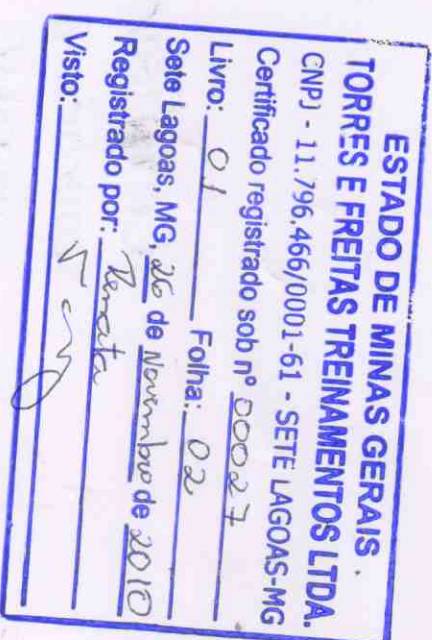 ESTADO DE MINAS GERAIS
TORRES E FREITAS TREINAMENTOS LTDA.
CNPJ - 11.796.466/0001-61 - SETE LAGOAS-MG
Certificado registrado sob nº 00027
Livro: 01 Folha: 02
Sete Lagoas, MG, 26 de Novembro de 2010
Registrado por: Renata
Visto: